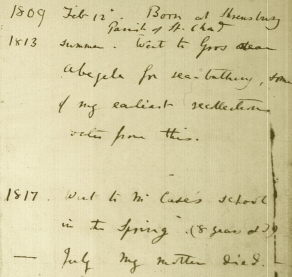 1809 Feb 12th Born at Shrewsbury
Parish of St. Chad
1813 summer. Went to Gros near
Abergele for sea-bathing, some
of my earliest recollections
date from this.
1817. Went to Mr Case's school
in the Spring. (8 years old)
— July my mother died.